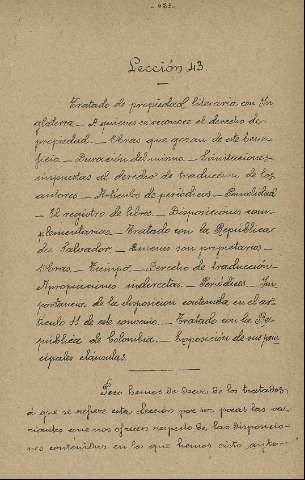 Lección 43.
Tratado de propiedad literaria con In
glaterra - A quienes se reconoce el derecho de
propiedad - Obras que gozan de este bene
ficio - Duración del mismo - Limitaciones
impuestas al derecho de traducción de los
autores - Artículos de periódicos - Penalidad
- El registro de libros - Disposiciones com
plementarias - Tratado con la República
del Salvador - Quienes son propietarios -
Obras - Tiempo - Derecho de traducción
Apropiaciones indirectas - Periódicos - Im
portancia de la disposición contenida en el ar
tículo 11 de este convenio - Tratado con la Re
pública de Colombia - Exposición de sus prin
cipales cláusulas.
Poco hemos de decir de los tratados
á que se refiere esta Lección por ser pocas las va
riantes que nos ofrecen respecto de las disposicio
nes contenidas en los que hemos visto